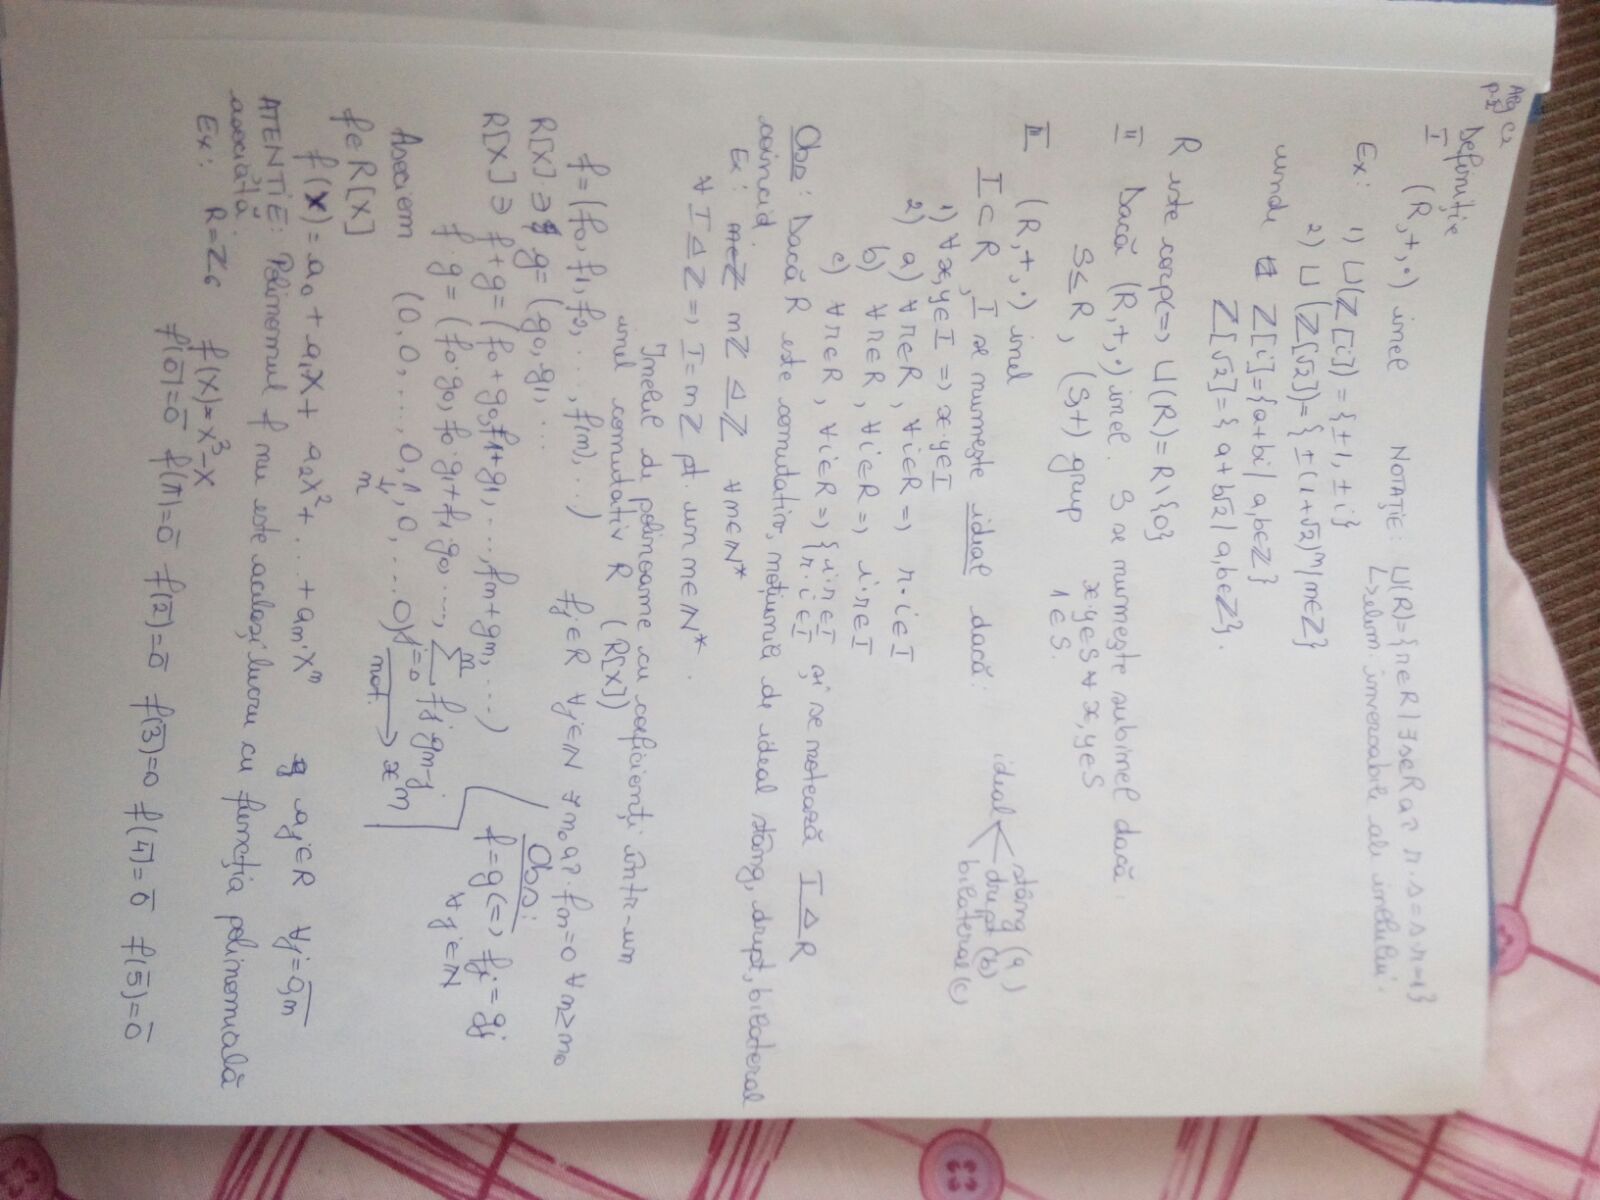 Alg C2
p. I
Definiție
I (R,+,·) inel NOTAȚIE: U(R)={r∈R | ∃ s∈R a? r·s=s·r=1}
↳ elem. inversabile ale inelului.
Ex: 1) U(Z[i])={±1, ±i}
2) U(Z[√2])={±(1+√2)^m | m∈Z}
unde Z[i]={a+bi | a,b∈Z}
Z[√2]={a+b√2 | a,b∈Z}.
R este corp <=> U(R)=R\{0}
II Dacă (R,+,·) inel. S se numește subinel dacă.
S≤R, (S,+) grup x·y∈S ∀ x,y∈S
1∈S.
III (R,+,·) inel
I⊂R, I se numește ideal dacă:
1) ∀x,y∈I => x-y∈I
2) a) ∀r∈R, ∀i∈R => r·i∈I
b) ∀r∈R, ∀i∈R => i·r∈I
c) ∀r∈R, ∀i∈R => {i·r∈I r·i∈I și se notează I⊴R
ideal stâng (a)
drept (b)
bilateral (c)
Obs: Dacă R este comutativ, noțiunile de ideal stâng, drept, bilateral
coincid.
Ex: m∈Z mZ ⊴ Z ∀m∈N*
∀ I⊴Z => I=mZ pt. un m∈N*.
Inelul de polinoame cu coeficienți într-un
inel comutativ R (R[X])
f=(f0, f1, f2, ..., f(m), ..) fj∈R ∀j∈N ∃ m0 a? fm=0 ∀m≥m0
R[X]∋ g=(g0, g1, ...
R[X]∋ f+g=(f0+g0, f1+g1, ..., fm+gm, ...)
f·g=(f0·g0, f0·g1+f1·g0, ..., Σ^m_{j=0} fj gm-j
Obs:
f=g <=> fj=gj
∀j∈N
Asociem (0,0,...,0,1,0,...0) not. → x^m
↓
m
f∈R[X]
f(X)=a0+a1X+a2X²+...+am·X^m aj∈R ∀j=0,m
ATENȚIE: Polinomul f nu este același lucru cu funcția polinomială
asociată.
Ex: R=Z6 f(X)=X³-X
f(0)=0 f(1)=0 f(2)=0 f(3)=0 f(4)=0 f(5)=0